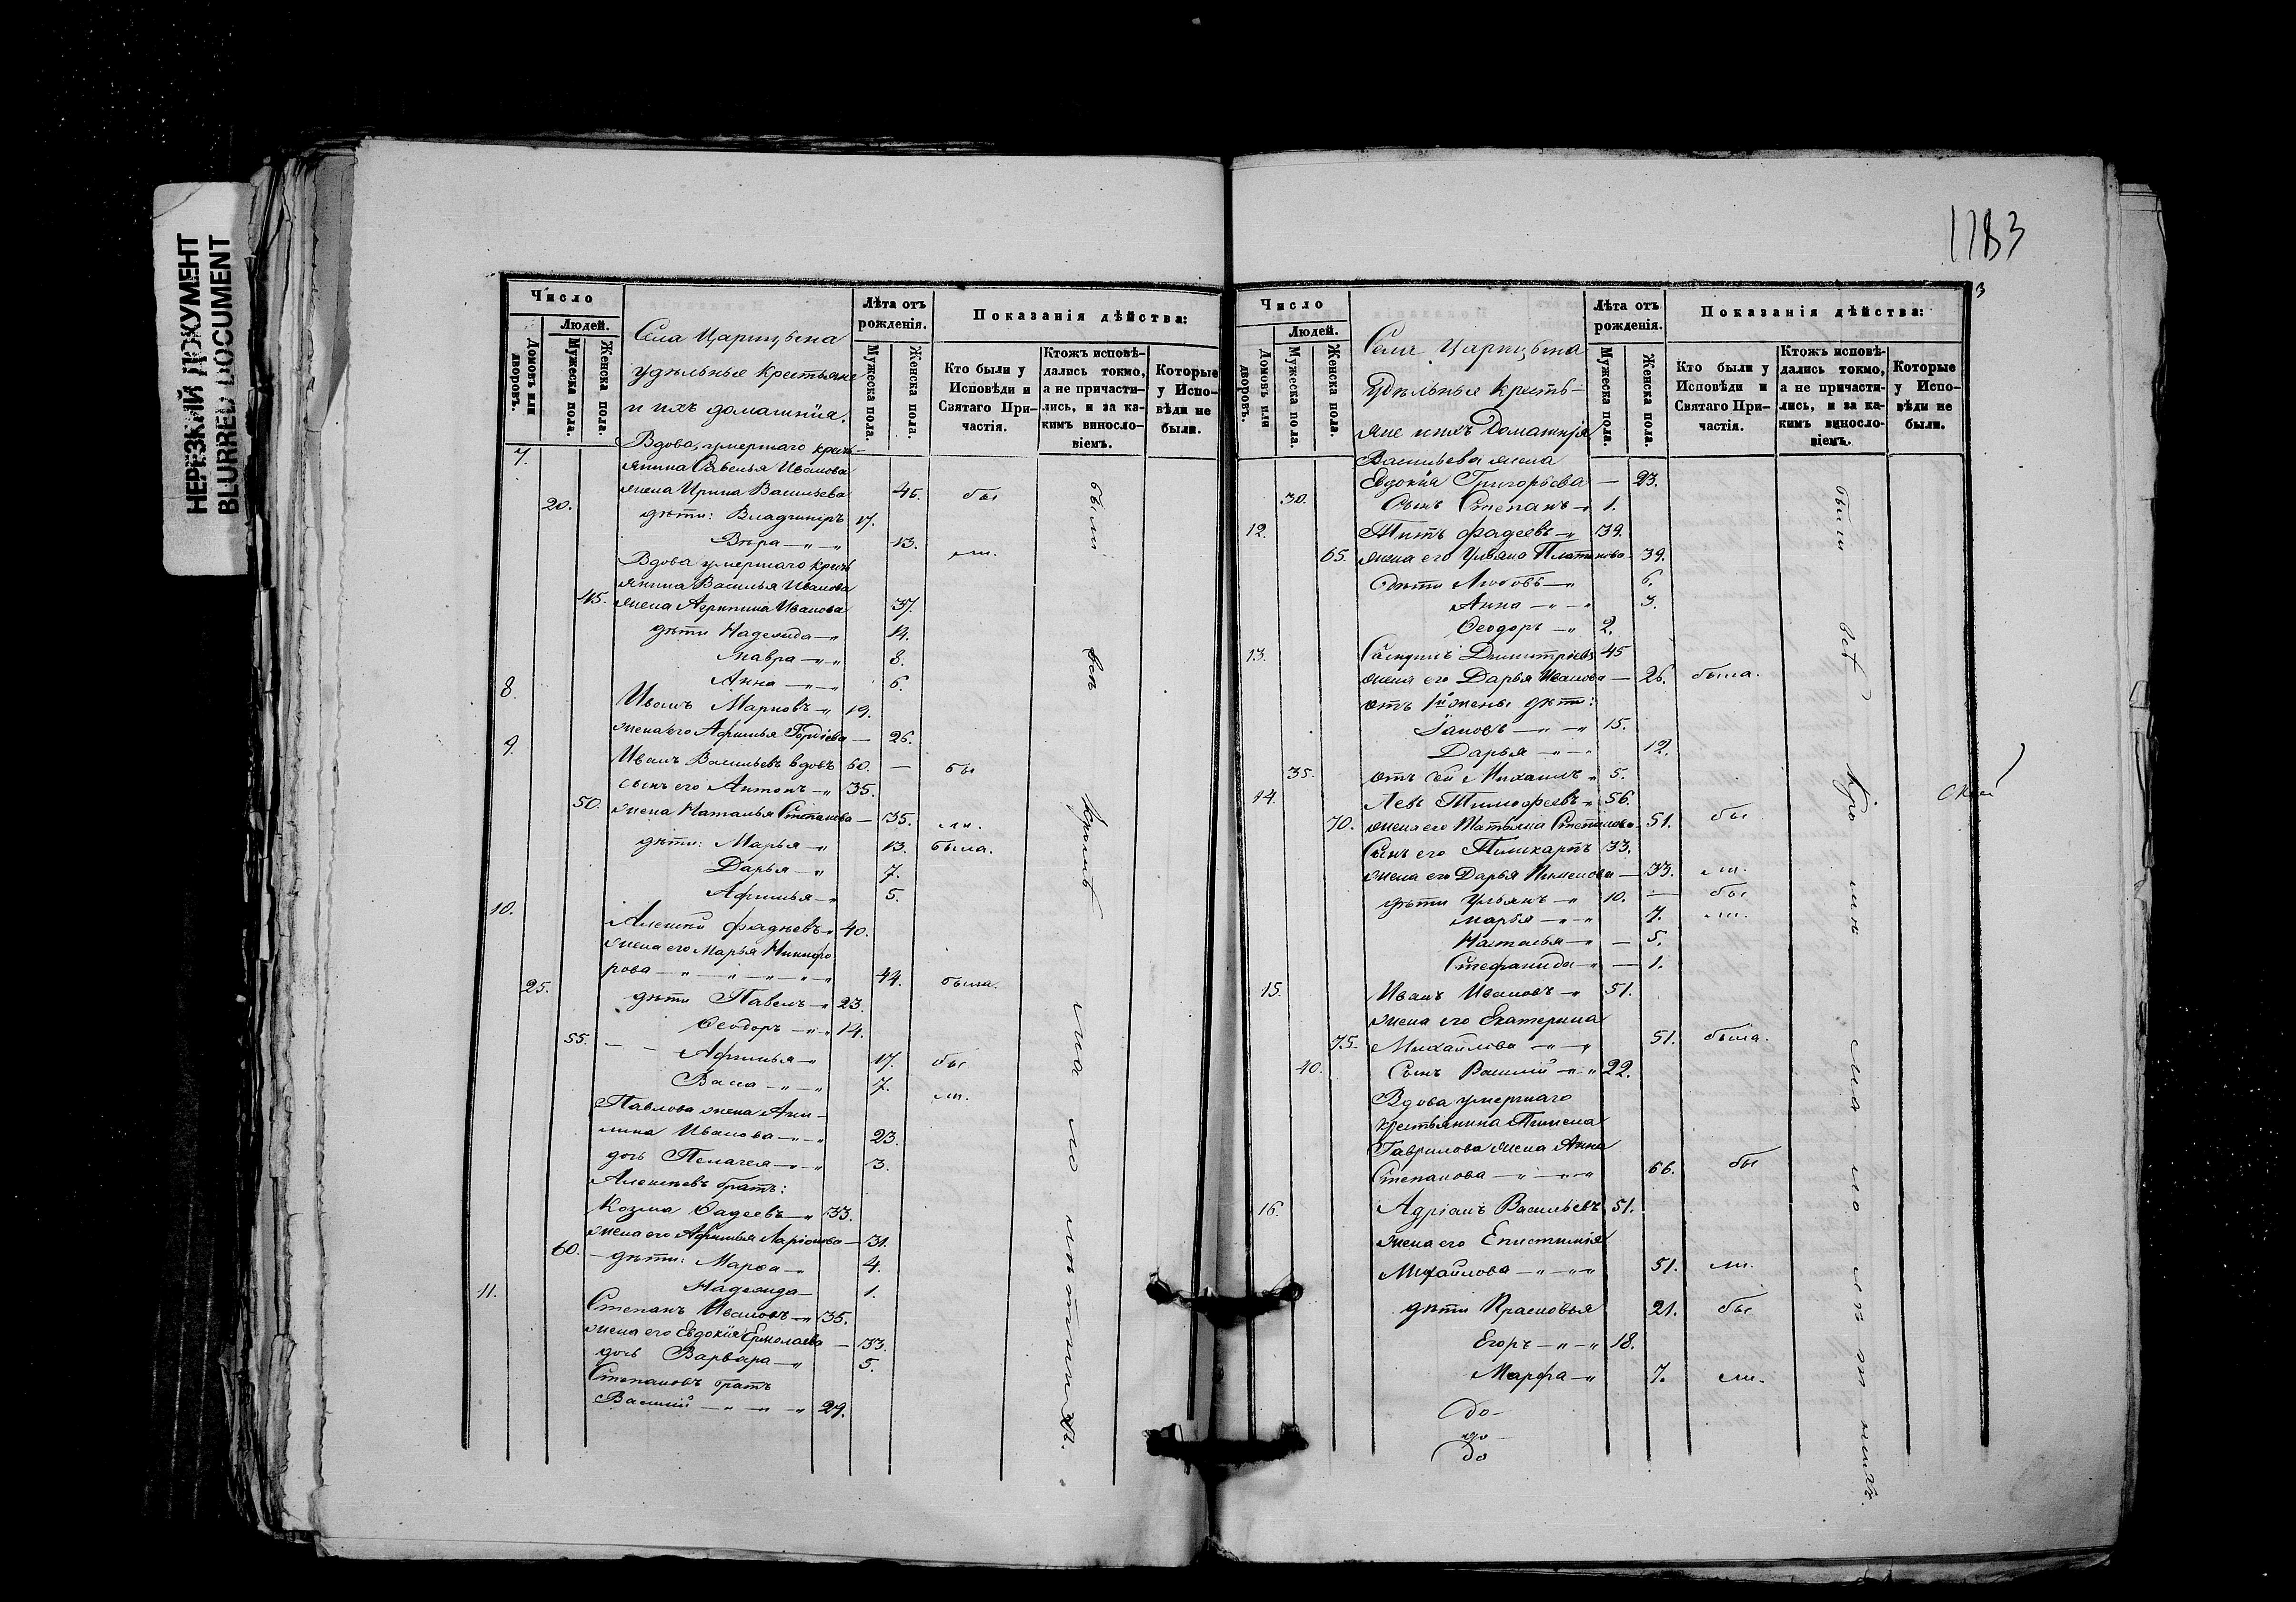 НЕРЕЗКИЙ ДОКУМЕНТ
BLURRED DOCUMENT
Число
Людей.
Домовъ или дворовъ.
Мужеска пола.
Женска пола.
Села Царицына
удѣльные крестьяне
и ихъ домашнія.
Лѣта отъ рожденія.
Мужеска пола.
Женска пола.
Показанія дѣйства:
Кто были у Исповѣди и Святаго Причастія.
Ктожъ исповѣдались токмо, а не причастились, и за какимъ винословіемъ.
Которые у Исповѣди не были.
7. Вдова, умершаго кресть-
янина Савелья Иванова
жена Ирина Васильева 46. бы
20. дѣти: Владимiръ 17.
Вѣра 13. ли.
Вдова умершаго кресть
янина Василья Иванова
45. жена Агрипина Иванова 37.
дѣти Надежда 14.
Мавра 8.
Анна 6.
8. Иванъ Марковъ 19.
жена его Афимья Гордiева 26.
9. Иванъ Васильевъ вдовъ 60. — бы
сынъ его Антонъ 35.
50. жена Наталья Степанова 35. ли.
дѣти: Марья 13. была.
Дарья 7.
Афимья 5.
10. Алексѣй Фадѣевъ 40.
жена его Марья Никифо
рова 44. была.
25. дѣти Павелъ 23.
Ѳеодоръ 14.
55. Афимья 17. бы
Васса 7. ли.
Павлова жена Аку-
лина Иванова 23.
дочь Пелагея 3.
Алексѣевъ братъ:
Козма Фадеевъ 33.
жена его Афимья Ларiонова 31.
60. дѣти: Марѳа 4.
Надежда 1.
11. Степанъ Ивановъ 35.
жена его Евдокiя Ермолаева 33.
дочь Варвара 5.
Степановъ братъ
Василiй 29.
были всѣ кромѣ
1183
3
Число
Людей.
Домовъ или дворовъ.
Мужеска пола.
Женска пола.
Села Царицына
Удѣльные кресть-
яне и ихъ домашнiя
Лѣта отъ рожденія.
Мужеска пола.
Женска пола.
Показанія дѣйства:
Кто были у Исповѣди и Святаго Причастія.
Ктожъ исповѣдались токмо, а не причастились, и за какимъ винословіемъ.
Которые у Исповѣди не были.
Васильева жена
Евдокiя Григорьева — 23.
30. Сынъ Степанъ 1.
12. Титъ Фадеевъ 39.
65. жена его Ульяна Платонова 39.
Дѣти Любовь 6.
Анна 3.
Ѳеодоръ 2.
13. Самуилъ Димитрiевъ 45
жена его Дарья Иванова — 26. была.
отъ 1й жены дѣти:
Iаковъ 15.
Дарья 12.
35. отъ сей Михаилъ 5.
14. Левъ Тимофеевъ 56.
70. жена его Татьяна Степанова 51. бы
Сынъ его Поликарпъ 33.
жена его Дарья Пименова — 33. ли.
дѣти Ульянъ 10. — бы
Марья 7. ли.
Наталья — 5.
Стефанида — 1.
15. Иванъ Ивановъ 51.
жена его Екатерина
75. Михайлова 51. была.
40. Сынъ Василiй 22.
Вдова умершаго
крестьянина Пимена
Гаврилова жена Анна
Степанова 66. бы
16. Адрiанъ Васильевъ 51.
жена его Епистимiя
Михайлова 51. ли.
дѣти Прасковья 21. бы
Егоръ 18.
Марфа 7. ли.
до-
до
были всѣ